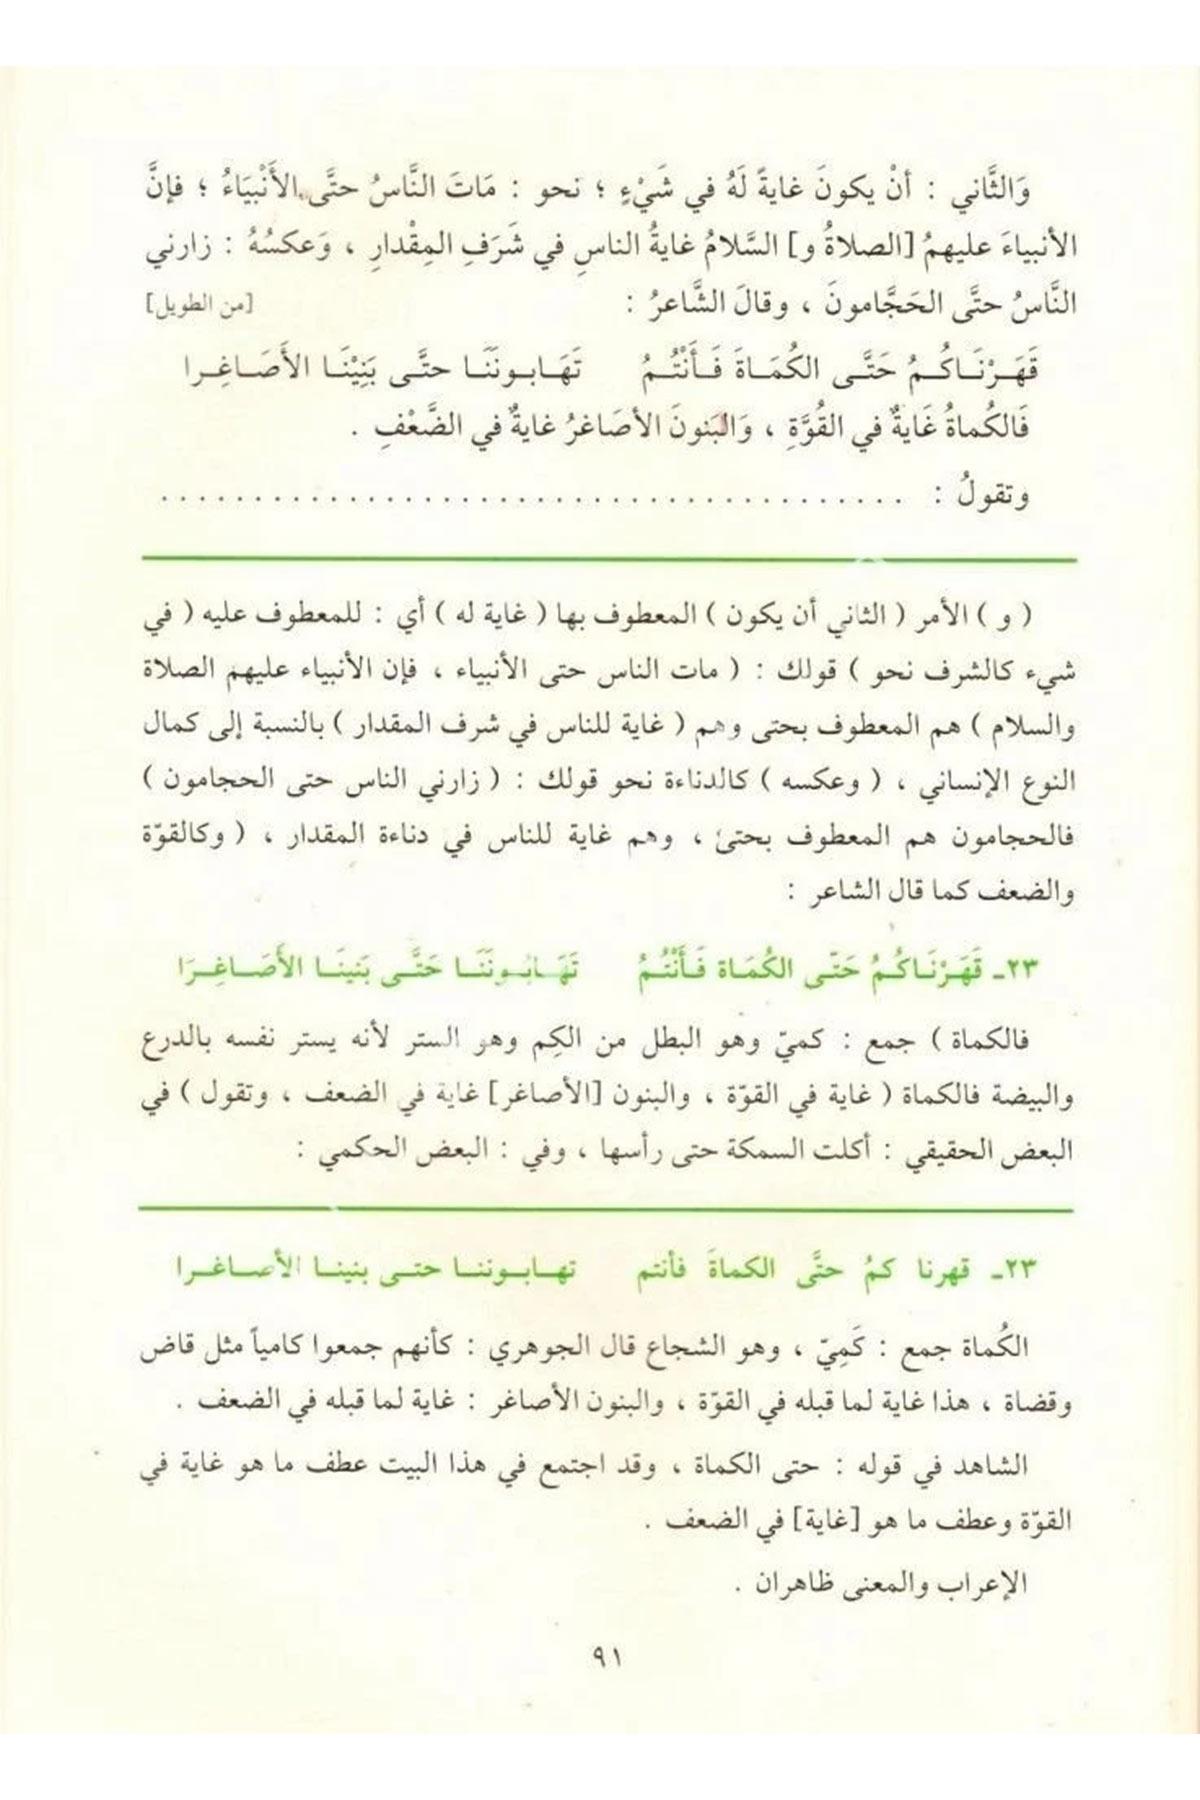 وَالثَّاني : أنْ يكونَ غايةً لَهُ في شَيْءٍ ؛ نحو : مَاتَ النَّاسُ حتَّى الأَنْبِيَاءُ ؛ فإنَّ
الأنبياءَ عليهمُ [الصلاةُ و] السَّلامُ غايةُ الناسِ في شَرَفِ المِقْدارِ ، وَعكسُهُ : زارني
النَّاسُ حتَّى الحَجَّامونَ ، وقالَ الشَّاعرُ : [من الطويل]
قَهَرْنَاكُمُ حَتَّى الكُمَاةَ فَأَنْتُمُ تَهَابونَنَا حتَّى بَنِيْنَا الأَصَاغِرا
فَالكُماةُ غَايةٌ في القُوَّةِ ، وَالبَنونَ الأصَاغرُ غايةٌ في الضَّعْفِ .
وتقولُ : . . . . . . . . . . . . . . . . . . . . . . . . . . . . . . . . . . . . . . .
( و ) الأمر ( الثاني أن يكون ) المعطوف بها ( غاية له ) أي : للمعطوف عليه ( في
شيء كالشرف نحو ) قولك : ( مات الناس حتى الأنبياء ، فإن الأنبياء عليهم الصلاة
والسلام ) هم المعطوف بحتى وهم ( غاية للناس في شرف المقدار ) بالنسبة إلى كمال
النوع الإنساني ، ( وعكسه ) كالدناءة نحو قولك : ( زارني الناس حتى الحجامون )
فالحجامون هم المعطوف بحتىٰ ، وهم غاية للناس في دناءة المقدار ، ( وكالقوّة
والضعف كما قال الشاعر :
٢٣ـ قَهَرْنَاكُمُ حَتّى الكُمَاة فَأَنْتُمُ تَهَابُونَنَا حَتَّى بَنينَا الأَصَاغِرَا
فالكماة ) جمع : كميّ وهو البطل من الكِم وهو الستر لأنه يستر نفسه بالدرع
والبيضة فالكماة ( غاية في القوّة ، والبنون [الأصاغر] غاية في الضعف ، وتقول ) في
البعض الحقيقي : أكلت السمكة حتى رأسها ، وفي : البعض الحكمي :
٢٣ـ قهرنا كمُ حتَّى الكماةَ فأنتم تهابوننا حتى بنينا الأصاغرا
الكُماة جمع : كَمِيّ ، وهو الشجاع قال الجوهري : كأنهم جمعوا كامياً مثل قاض
وقضاة ، هذا غاية لما قبله في القوّة ، والبنون الأصاغر : غاية لما قبله في الضعف .
الشاهد في قوله : حتى الكماة ، وقد اجتمع في هذا البيت عطف ما هو غاية في
القوّة وعطف ما هو [غاية] في الضعف .
الإعراب والمعنى ظاهران .
٩١